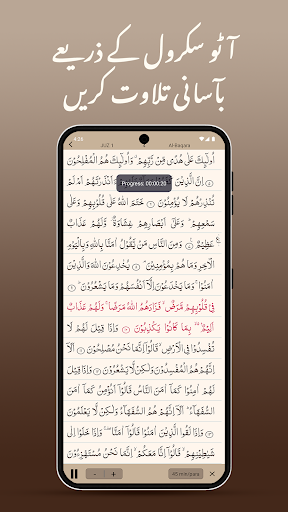 آٹو سکرول کے ذریعے
بآسانی تلاوت کریں
4:26
JUZ 1
Al-Baqara
أُولَٰئِكَ عَلَىٰ هُدًى مِّن رَّبِّهِمْ ۖ وَأُولَٰئِكَ هُمُ الْمُفْلِحُونَ
إِنَّ الَّذِينَ
Progress: 00:00:20
سَمْعِهِمْ ۖ وَعَلَىٰ أَبْصَارِهِمْ غِشَاوَةٌ ۖ وَلَهُمْ عَذَابٌ
عَظِيمٌ ۝ وَمِنَ النَّاسِ مَن يَقُولُ آمَنَّا بِاللَّهِ وَبِالْيَوْمِ
الْآخِرِ وَمَا هُم بِمُؤْمِنِينَ ۝ يُخَادِعُونَ اللَّهَ وَالَّذِينَ
آمَنُوا ۚ وَمَا يَخْدَعُونَ إِلَّا أَنفُسَهُمْ وَمَا يَشْعُرُونَ ۝
فِي قُلُوبِهِم مَّرَضٌ ۙ فَزَادَهُمُ اللَّهُ مَرَضًا ۖ وَلَهُمْ عَذَابٌ
أَلِيمٌ ۙ بِمَا كَانُوا يَكْذِبُونَ ۝ وَإِذَا قِيلَ لَهُمْ لَا
تُفْسِدُوا فِي الْأَرْضِ ۙ قَالُوا إِنَّمَا نَحْنُ مُصْلِحُونَ ۝
أَلَا إِنَّهُمْ هُمُ الْمُفْسِدُونَ وَلَٰكِن لَّا يَشْعُرُونَ ۝
وَإِذَا قِيلَ لَهُمْ آمِنُوا كَمَا آمَنَ النَّاسُ قَالُوا أَنُؤْمِنُ كَمَا آمَنَ
السُّفَهَاءُ ۗ أَلَا إِنَّهُمْ هُمُ السُّفَهَاءُ وَلَٰكِن لَّا يَعْلَمُونَ
۝ وَإِذَا لَقُوا الَّذِينَ آمَنُوا قَالُوا آمَنَّا ۚ وَإِذَا خَلَوْا إِلَىٰ
شَيَاطِينِهِمْ ۙ قَالُوا إِنَّا مَعَكُمْ ۙ إِنَّمَا نَحْنُ مُسْتَهْزِئُونَ
- +